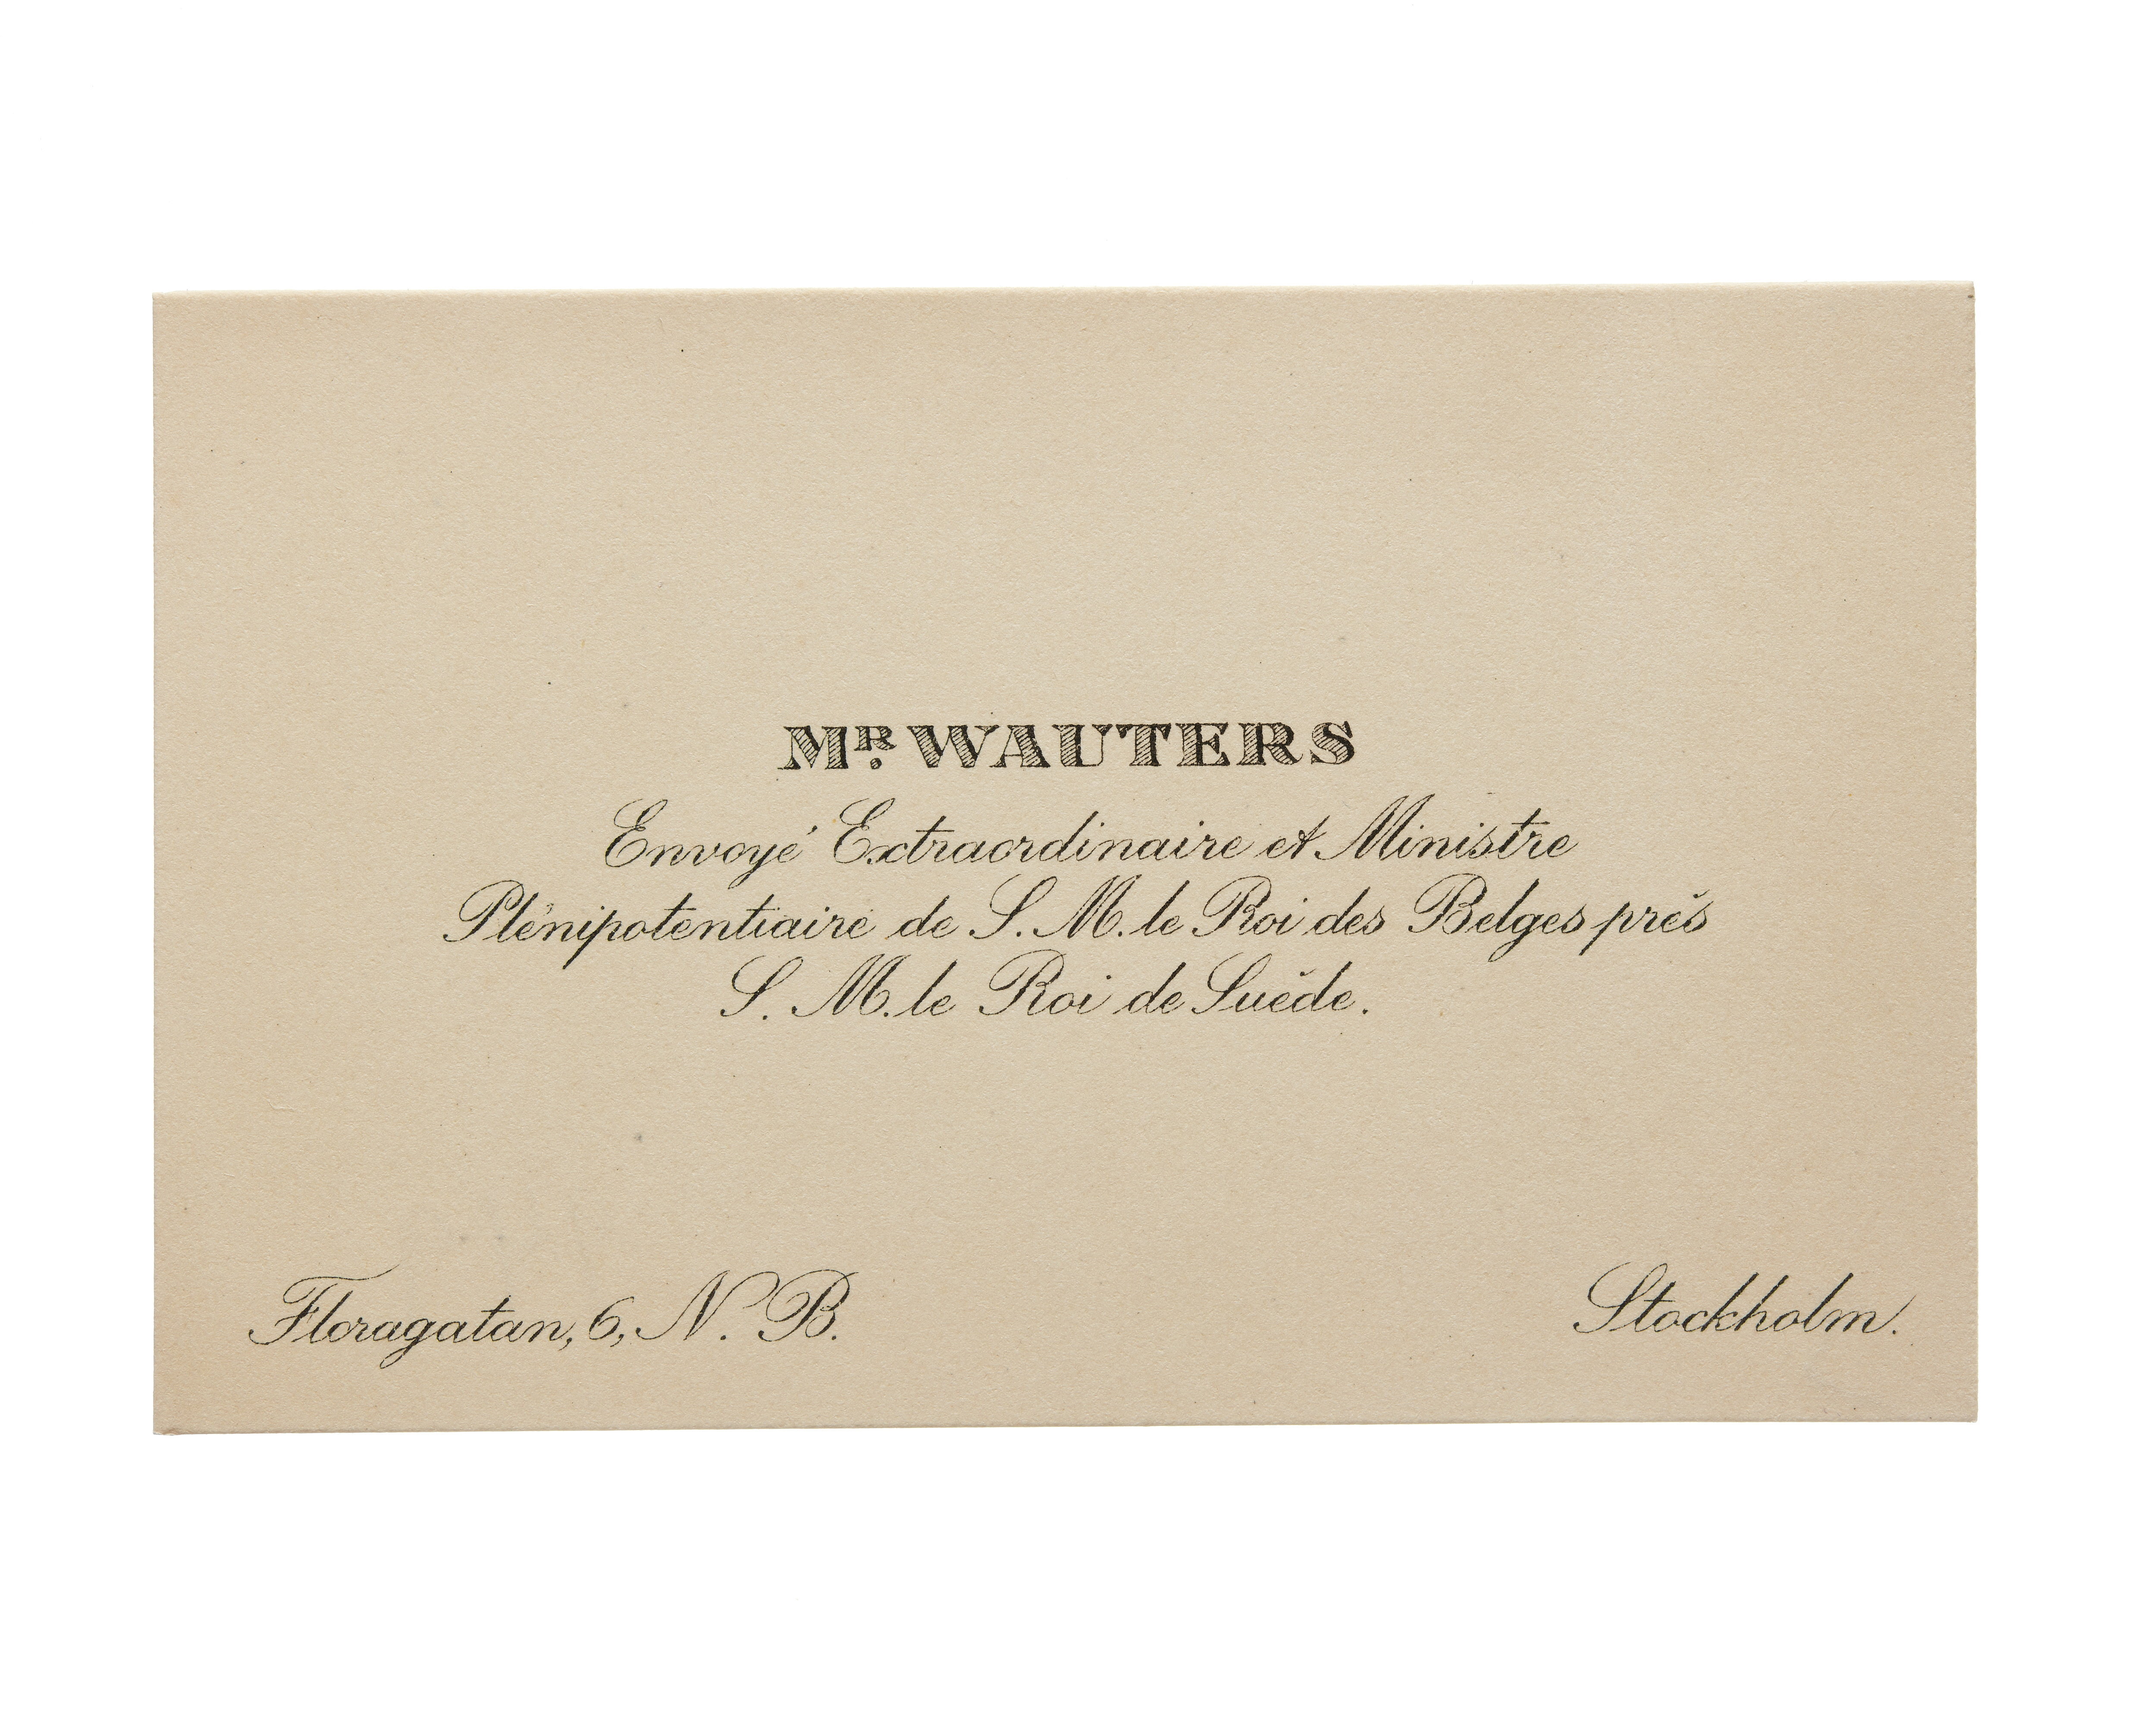 MR. WAUTERS
Envoyé Extraordinaire et Ministre
Plénipotentiaire de S. M. le Roi des Belges près
S. M. le Roi de Suède.
Floragatan, 6, N. B.
Stockholm.